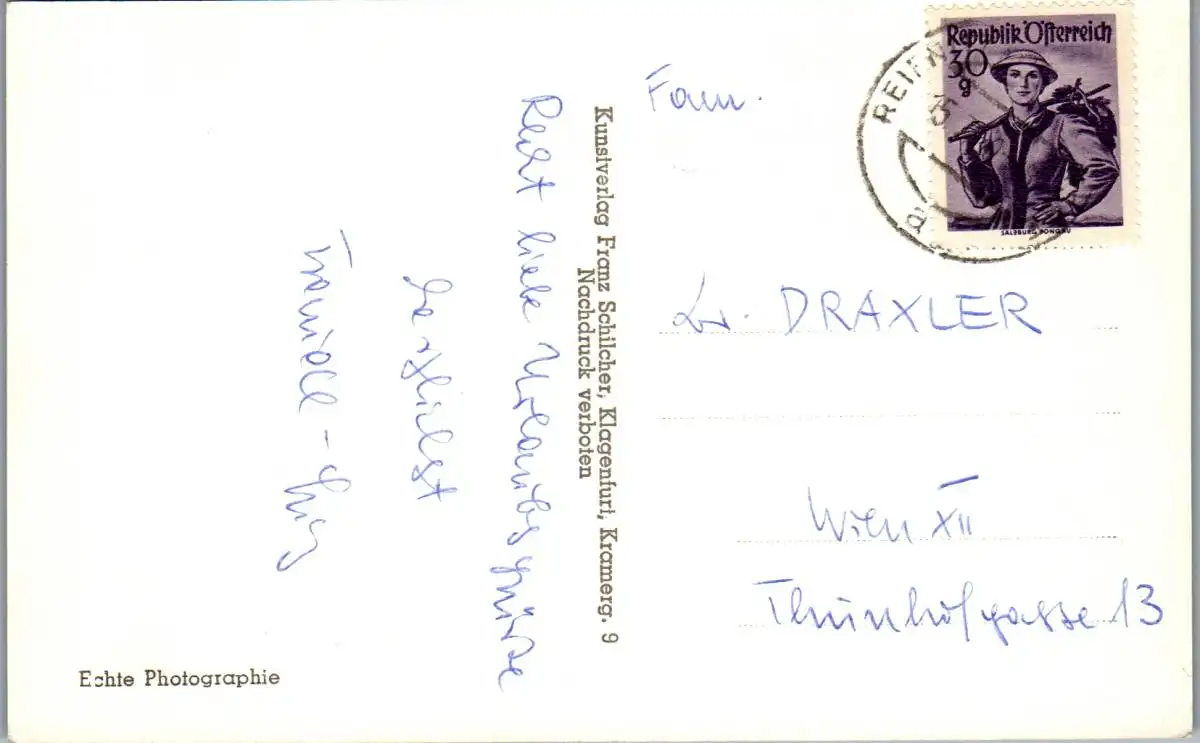 Recht liebe Urlaubsgrüsse
herzlichst
Kunstverlag Franz Schilcher, Klagenfurt, Kramerg. 9
Nachdruck verboten
Echte Photographie
Republik Österreich
30
g
SALZBURG, PONGAU
REIFN
Fam.
Dr. DRAXLER
Wien XII
Thunhofgasse 13